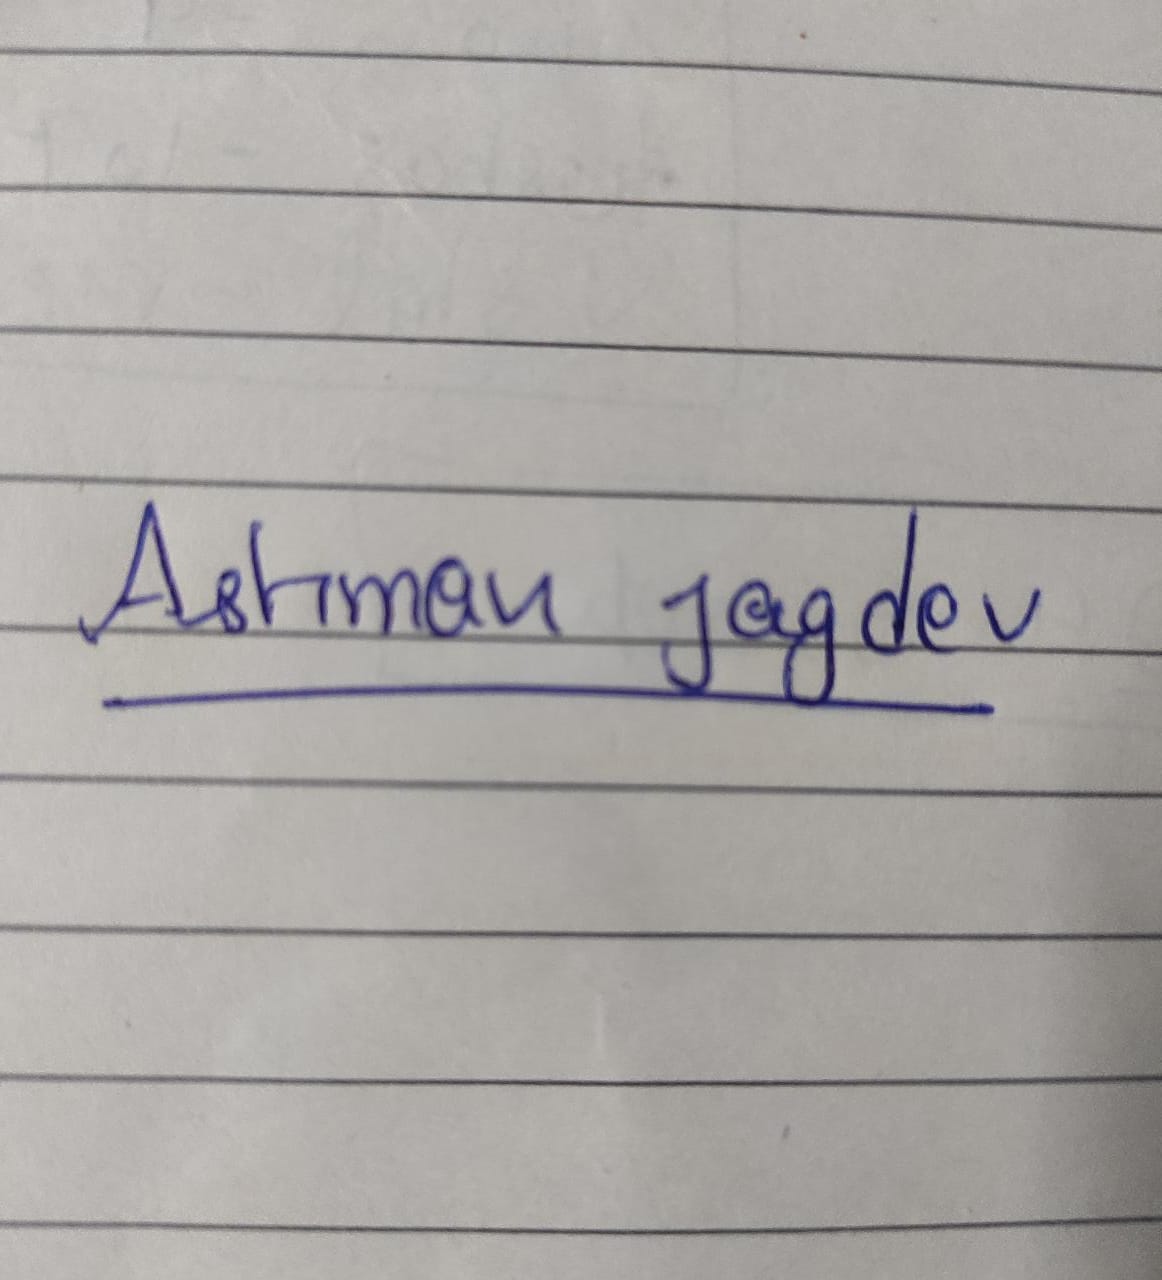 Ashman Jagdev